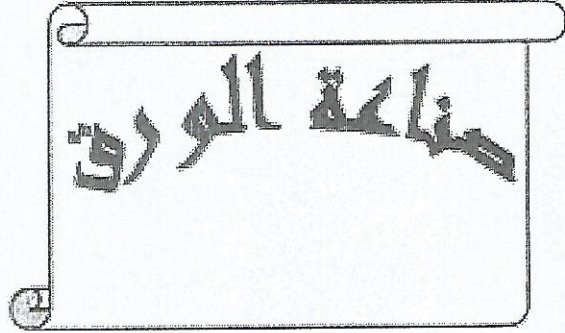 صناعة الورق